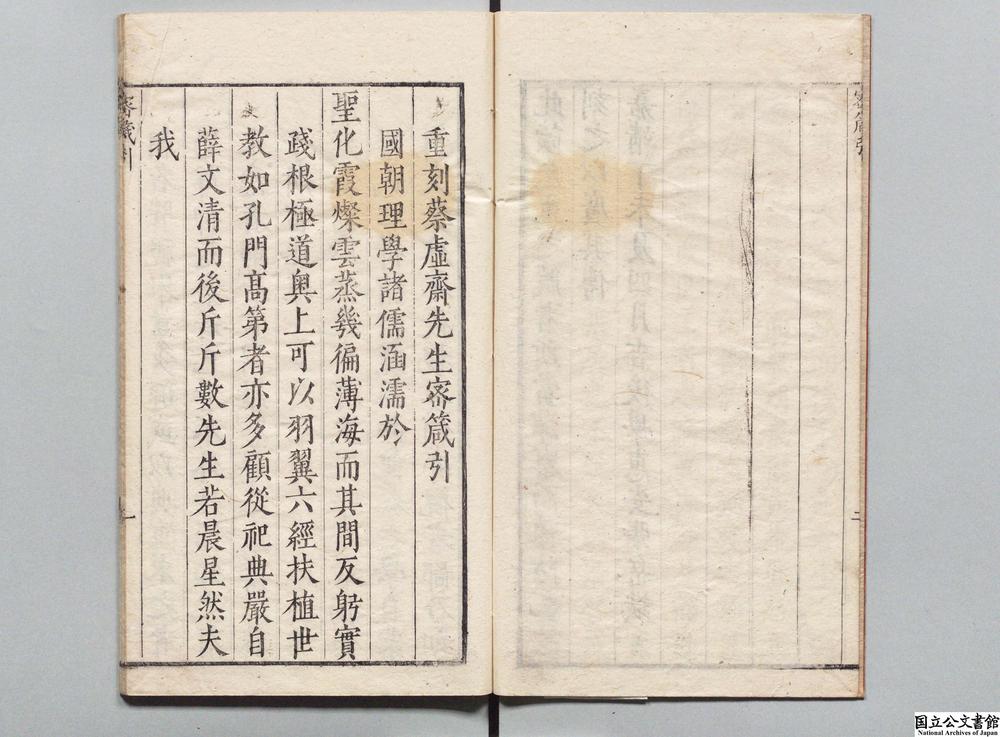 重刻蔡虛齋先生密箴引
國朝理學諸儒涵濡於
聖化霞燦雲蒸幾徧薄海而其間反躬實
踐根極道奧上可以羽翼六經扶植世
教如孔門高第者亦多顧從祀典嚴自
薛文清而後斤斤數先生若晨星然夫
我
密箴引
一
国立公文書館
National Archives of Japan